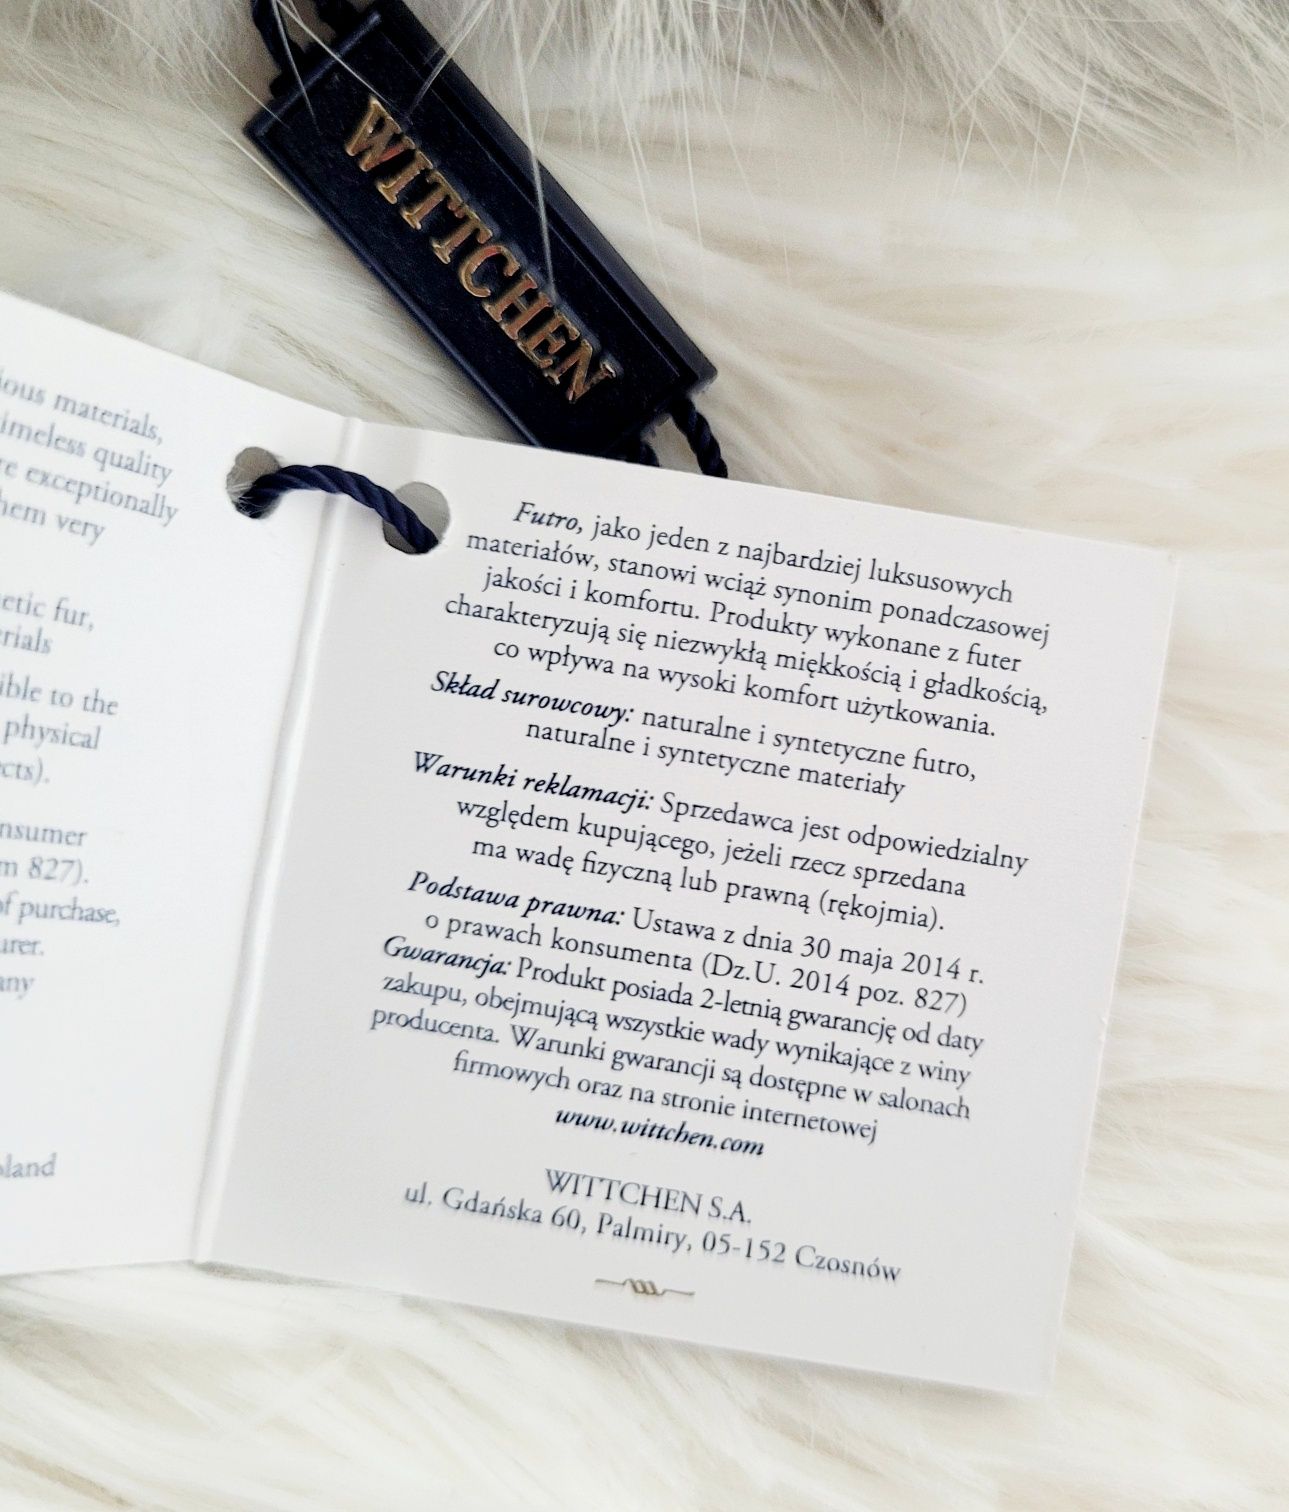 WITTCHEN
materials,
timeless quality
exceptionally
them very
fur,
ible to the
physical
827).
of purchase,
any
Futro, jako jeden z najbardziej luksusowych
materiałów, stanowi wciąż synonim ponadczasowej
jakości i komfortu. Produkty wykonane z futer
charakteryzują się niezwykłą miękkością i gładkością,
co wpływa na wysoki komfort użytkowania.
Skład surowcowy: naturalne i syntetyczne futro,
naturalne i syntetyczne materiały
Warunki reklamacji: Sprzedawca jest odpowiedzialny
względem kupującego, jeżeli rzecz sprzedana
ma wadę fizyczną lub prawną (rękojmia).
Podstawa prawna: Ustawa z dnia 30 maja 2014 r.
o prawach konsumenta (Dz.U. 2014 poz. 827)
Gwarancja: Produkt posiada 2-letnią gwarancję od daty
zakupu, obejmującą wszystkie wady wynikające z winy
producenta. Warunki gwarancji są dostępne w salonach
firmowych oraz na stronie internetowej
www.wittchen.com
WITTCHEN S.A.
ul. Gdańska 60, Palmiry, 05-152 Czosnów